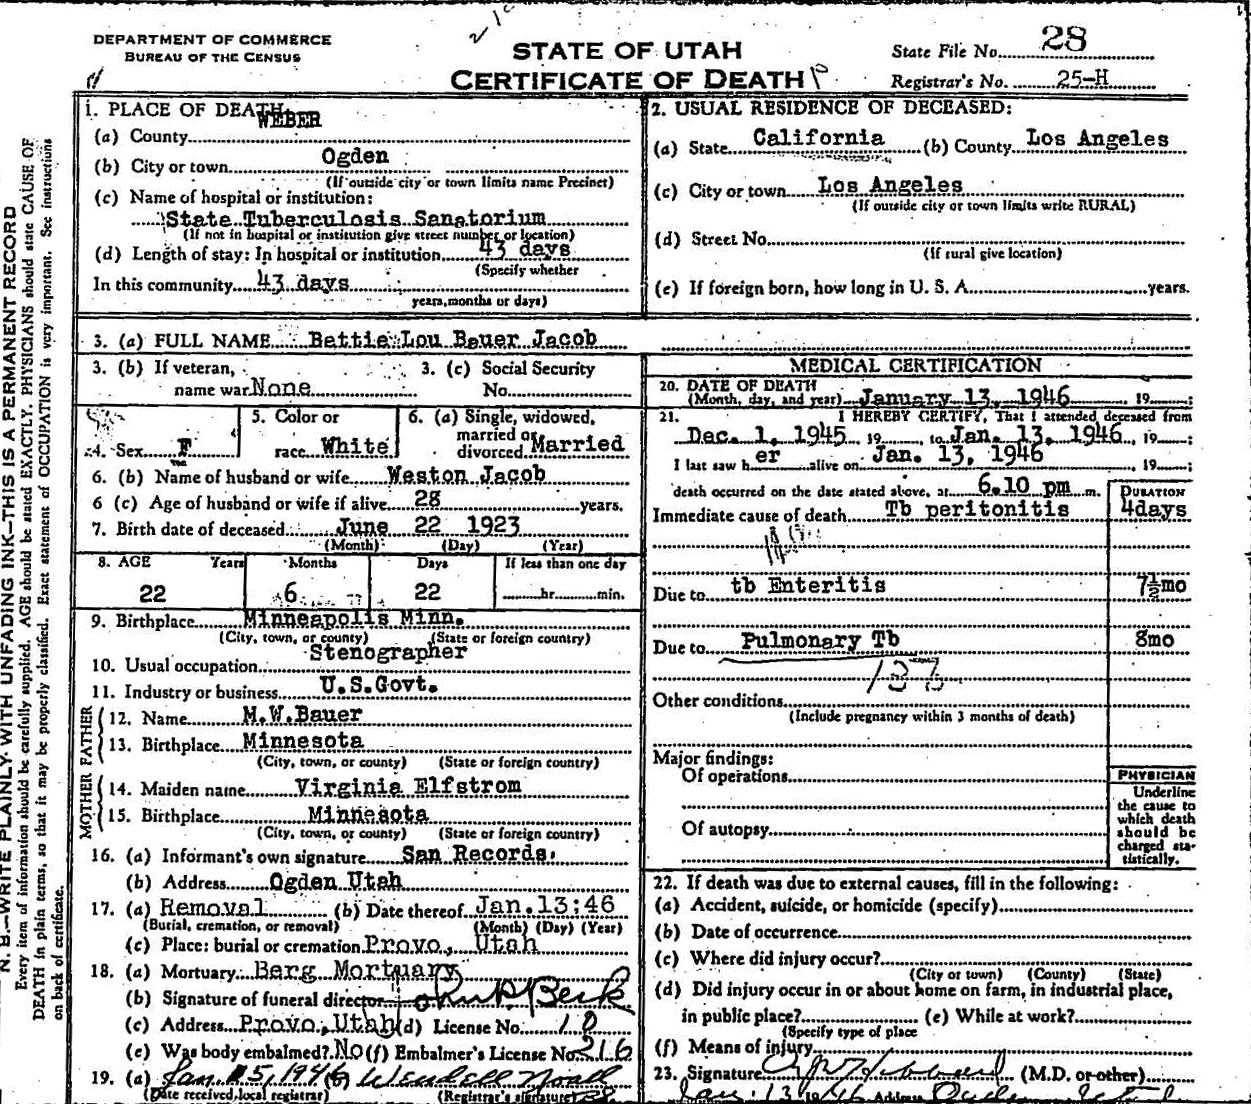 DEPARTMENT OF COMMERCE
BUREAU OF THE CENSUS
STATE OF UTAH
CERTIFICATE OF DEATH
State File No. 28
Registrar's No. 25-H
N. B.—WRITE PLAINLY WITH UNFADING INK—THIS IS A PERMANENT RECORD
Every item of information should be carefully supplied. AGE should be stated EXACTLY. PHYSICIANS should state CAUSE OF
DEATH in plain terms, so that it may be properly classified. Exact statement of OCCUPATION is very important. See instructions
on back of certificate.
1. PLACE OF DEATH
(a) County WEBER
(b) City or town Ogden
(If outside city or town limits name Precinct)
(c) Name of hospital or institution:
State Tuberculosis Sanatorium
(If not in hospital or institution give street number or location)
(d) Length of stay: In hospital or institution 43 days
(Specify whether
In this community 43 days
years, months or days)
2. USUAL RESIDENCE OF DECEASED:
(a) State California (b) County Los Angeles
(c) City or town Los Angeles
(If outside city or town limits write RURAL)
(d) Street No.
(If rural give location)
(e) If foreign born, how long in U. S. A. years.
3. (a) FULL NAME Bettie Lou Bauer Jacob
3. (b) If veteran, name war None
3. (c) Social Security No.
4. Sex F
5. Color or race White
6. (a) Single, widowed, married or divorced Married
6. (b) Name of husband or wife Weston Jacob
6 (c) Age of husband or wife if alive 28 years.
7. Birth date of deceased June 22 1923
(Month) (Day) (Year)
8. AGE Years Months Days If less than one day
22 6 22 hr. min.
9. Birthplace Minneapolis Minn.
(City, town, or county) (State or foreign country)
10. Usual occupation Stenographer
11. Industry or business U.S.Govt.
FATHER
12. Name M.W.Bauer
13. Birthplace Minnesota
(City, town, or county) (State or foreign country)
MOTHER
14. Maiden name Virginia Elfstrom
15. Birthplace Minnesota
(City, town, or county) (State or foreign country)
16. (a) Informant's own signature San Records.
(b) Address Ogden Utah
17. (a) Removal (b) Date thereof Jan.13;46
(Burial, cremation, or removal) (Month) (Day) (Year)
(c) Place: burial or cremation Provo, Utah
18. (a) Mortuary Berg Mortuary
(b) Signature of funeral director
(c) Address Provo, Utah (d) License No. 10
(e) Was body embalmed? No (f) Embalmer's License No. 216
19. (a) Jan 15, 1946 (b) Wendell Noall
(Date received, local registrar) (Registrar's signature)
MEDICAL CERTIFICATION
20. DATE OF DEATH
(Month, day, and year) January 13, 1946 19 ;
21. I HEREBY CERTIFY, That I attended deceased from
Dec. 1, 1945 19 , to Jan. 13, 1946 , 19 ;
I last saw her alive on Jan. 13, 1946 , 19 ;
death occurred on the date stated above, at 6.10 pm m.
DURATION
Immediate cause of death Tb peritonitis 4days
Due to tb Enteritis 7½mo
Due to Pulmonary Tb 8mo
Other conditions
(Include pregnancy within 3 months of death)
Major findings:
Of operations
Of autopsy
PHYSICIAN
Underline
the cause to
which death
should be
charged sta-
tistically.
22. If death was due to external causes, fill in the following:
(a) Accident, suicide, or homicide (specify)
(b) Date of occurrence
(c) Where did injury occur?
(City or town) (County) (State)
(d) Did injury occur in or about home on farm, in industrial place,
in public place? (e) While at work?
(Specify type of place
(f) Means of injury
23. Signature (M.D. or other)
Jan. 13 1946 Address Ogden Utah